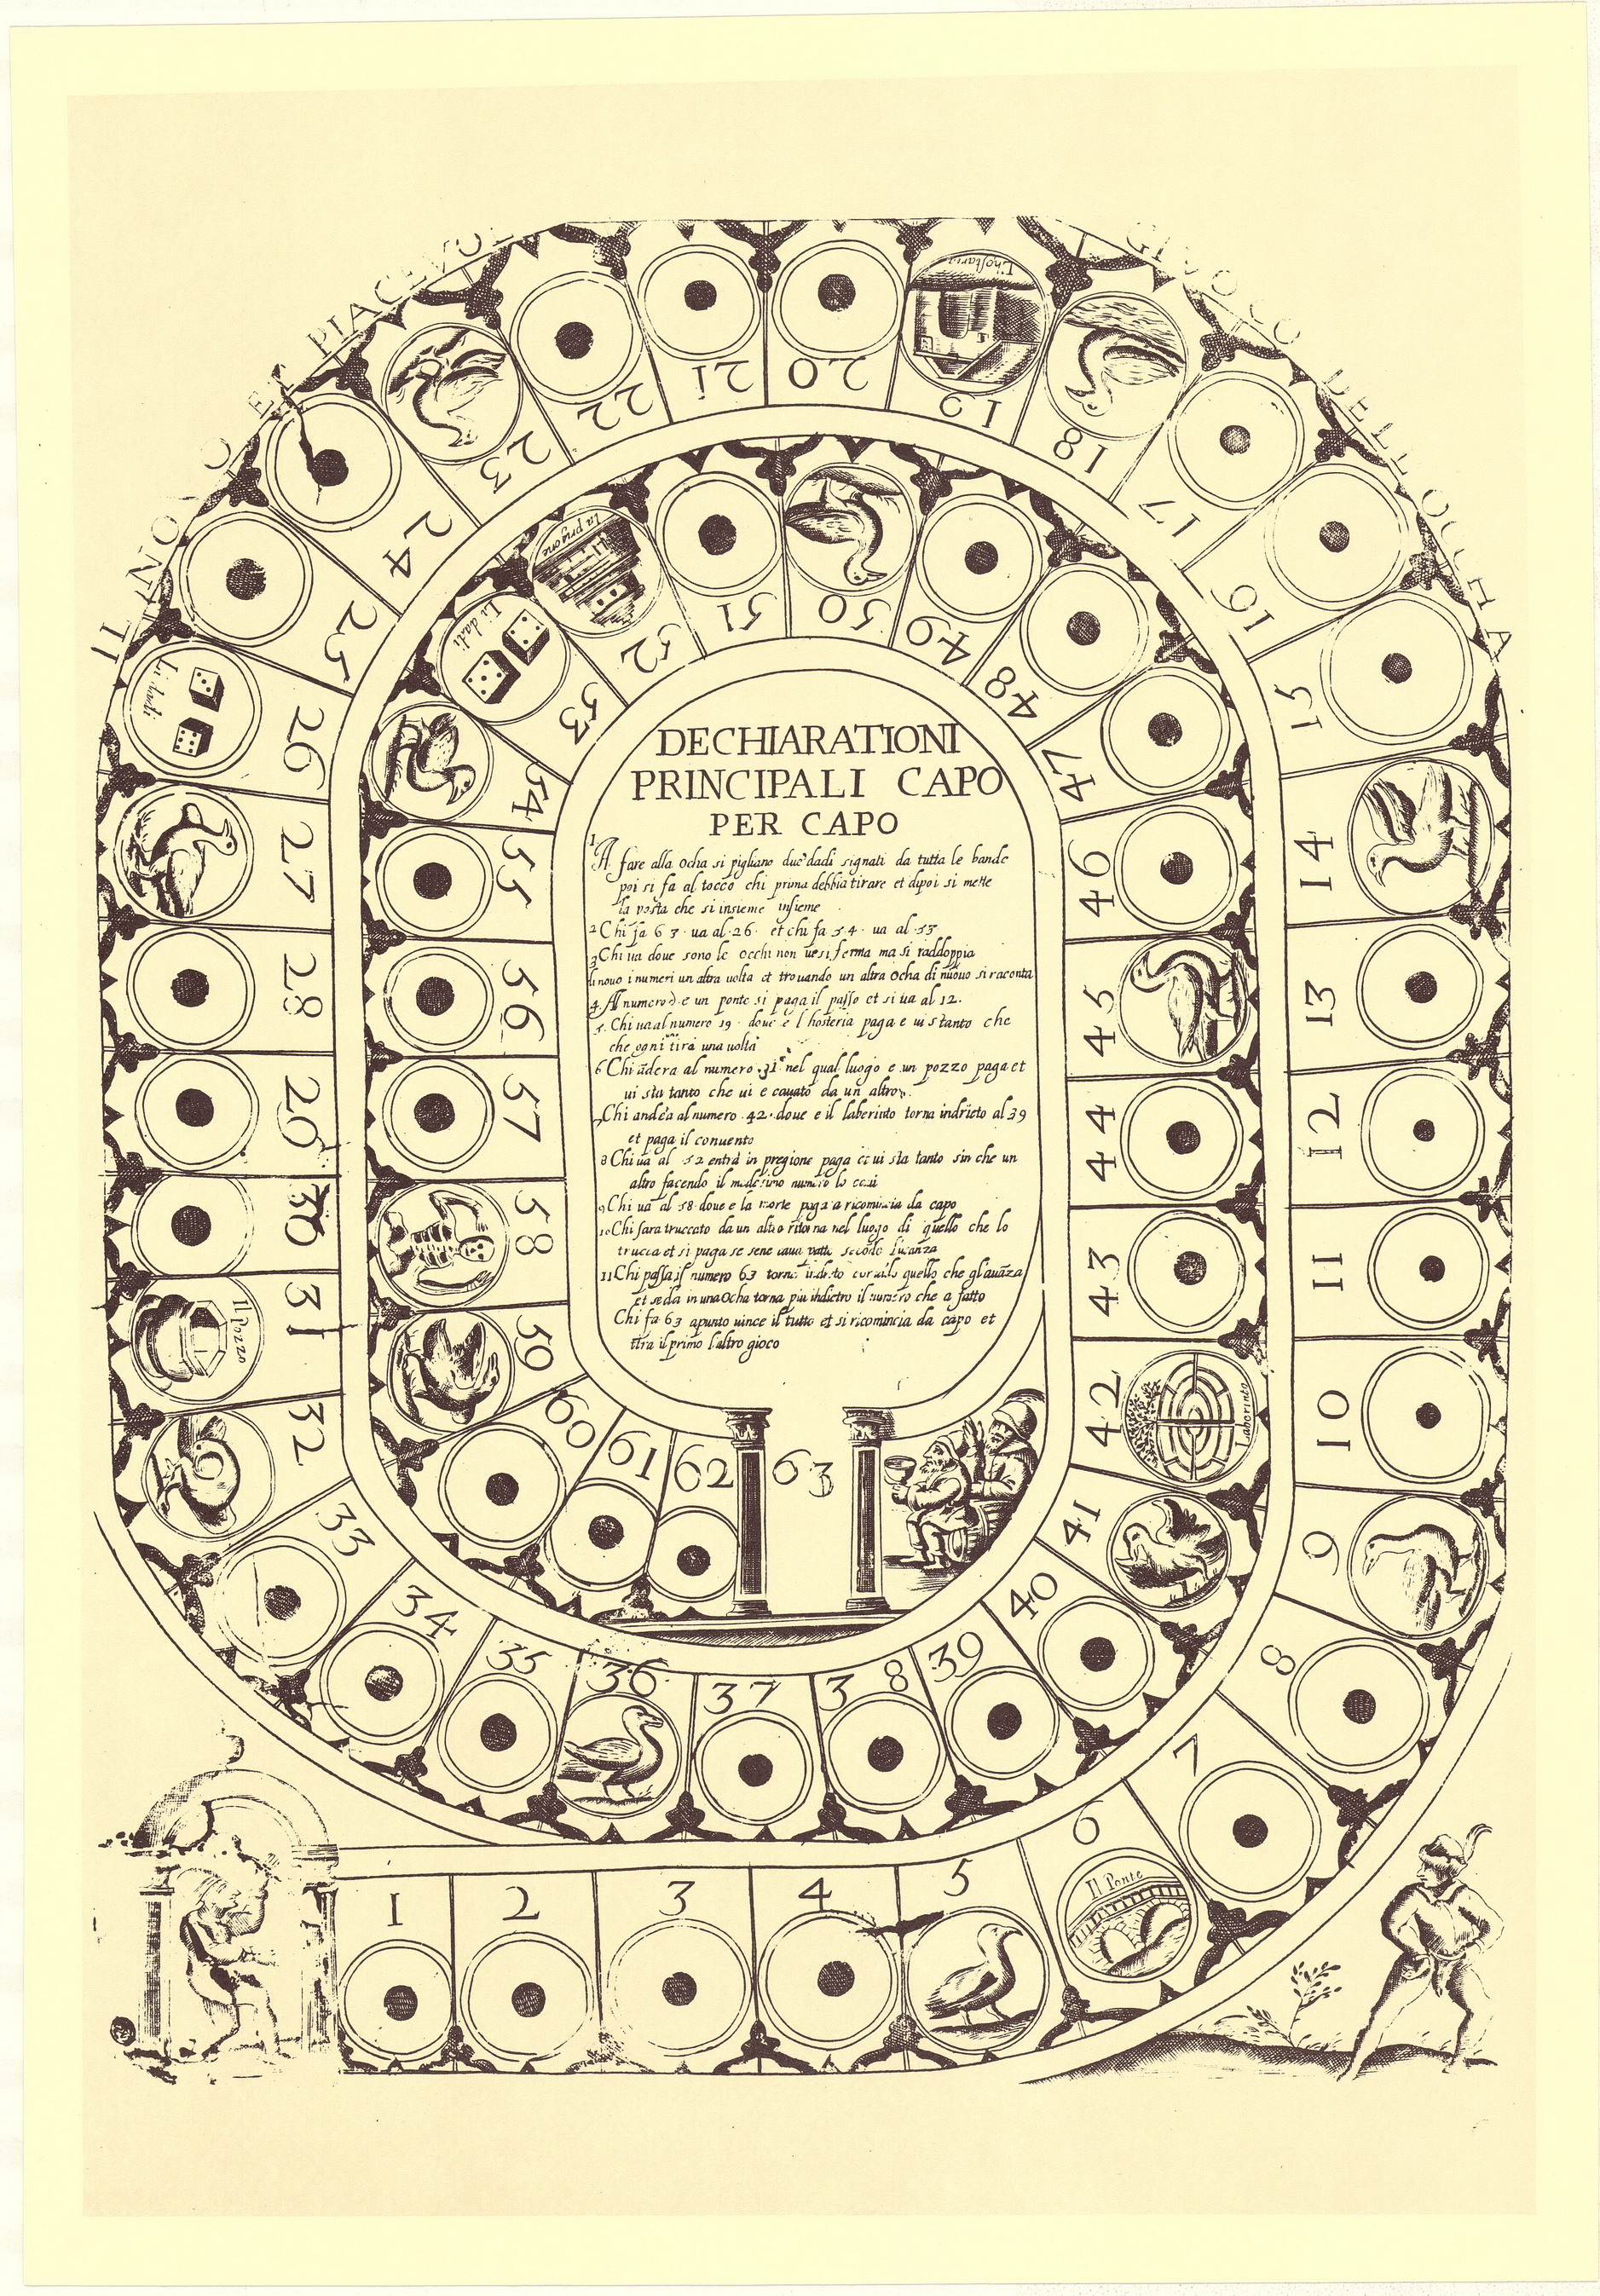 IL NOVO ET PIACEVOLE GIUOCO DELL OCHA
DECHIARATIONI
PRINCIPALI CAPO
PER CAPO
1 A fare alla Ocha si pigliano due dadi signati da tutta le bande
poi si fa al tocco chi prima debbia tirare et dipoi si mette
la posta che si insieme insieme
2 Chi fa 6 3 ua al 26 et chi fa 5 4 ua al 53
3 Chi ua doue sono le Occhi non ui si ferma ma si raddoppia
di nouo i numeri un altra uolta et trouando un altra Ocha di nuouo si raconta
4. Al numero e un ponte si paga il passo et si ua al 12.
5. Chi ua al numero 19 doue e l hosteria paga e ui sta tanto che
che ogni tira una uolta
6 Chi adera al numero 31 nel qual luogo e un pozzo paga et
ui sta tanto che ui e cauato da un altro
7 Chi andera al numero 42 doue e il laberinto torna indrieto al 39
et paga il conuento
8 Chi ua al 52 entra in pregione paga et ui sta tanto sin che un
altro facendo il medesimo numero lo caui
9 Chi ua al 58 doue e la morte paga a ricomincia da capo
10 Chi sara truccato da un altro ritorna nel luogo di quello che lo
trucca et si paga se sene caua
11 Chi passa il numero 63 torna quello che gl auãza
et se da in una Ocha torna piu indietro il numero che a fatto
Chi fa 63 apunto uince il tutto et si ricomincia da capo et
tira il primo l'altro gioco
1
2
3
4
5
6
Il Ponte
7
8
9
10
11
12
13
14
15
16
17
18
19
L'hostaria
20
21
22
23
24
25
26
Li dadi
27
28
29
30
31
Il Pozzo
32
33
34
35
36
37
38
39
40
41
42
Laborinto
43
44
45
46
47
48
49
50
51
52
La prigione
53
Li dadi
54
55
56
57
58
59
60
61
62
63